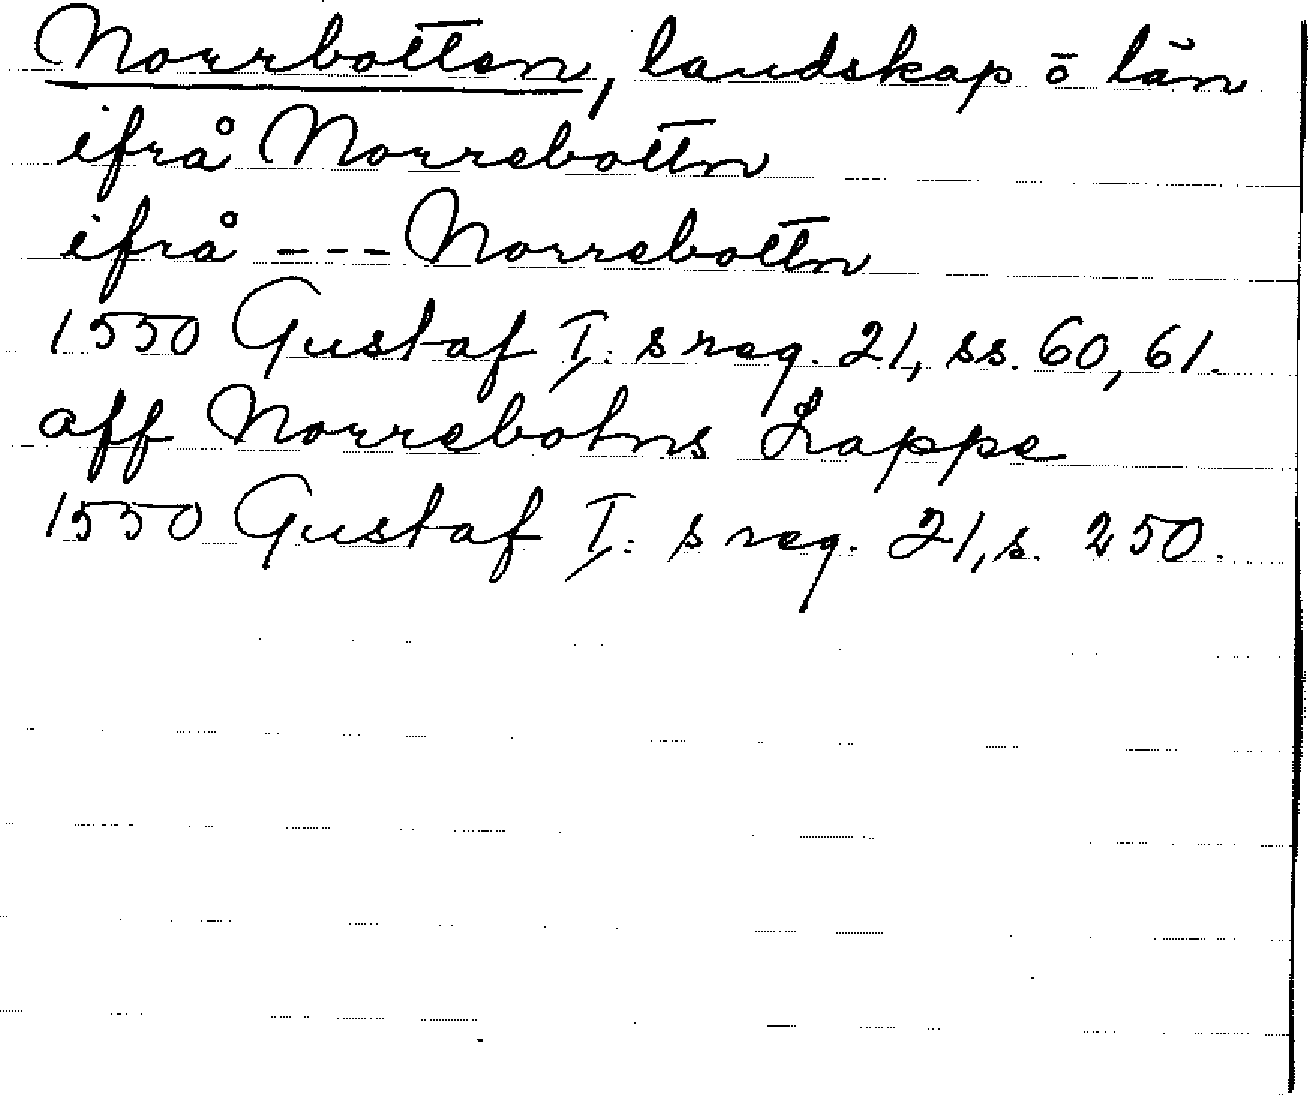 Norrbotten, landskap o län
ifrå Norrebottn
ifrå --- Norrebottn
1550 Gustaf I:s reg. 21, ss. 60, 61.
aff Norrebotns Lappe
1550 Gustaf I:s reg. 21, s. 250.